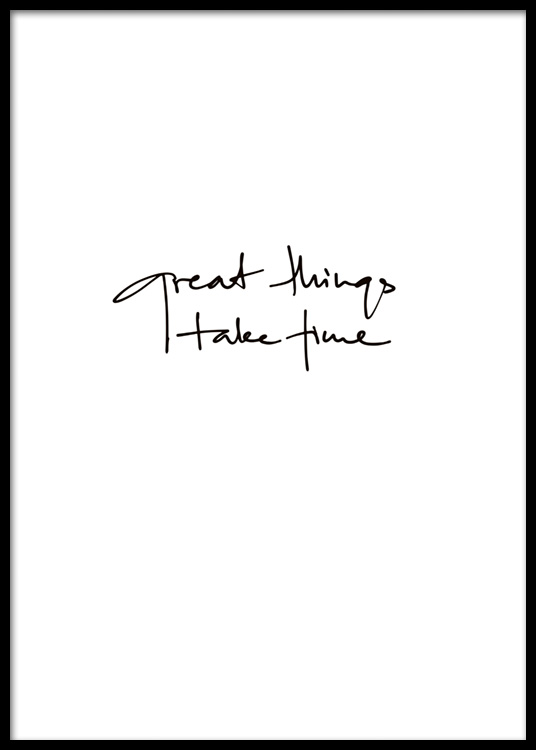 great things
take time